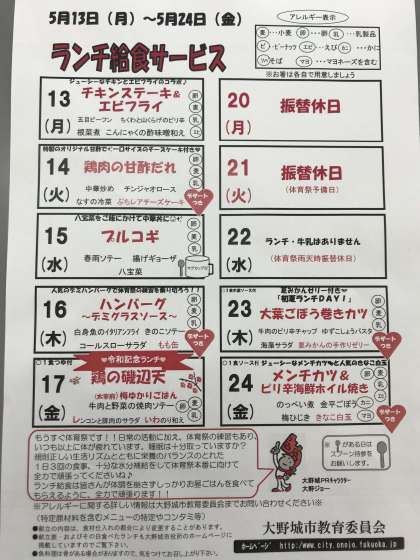 5月13日（月）～5月24日（金）
アレルギー表示
ランチ給食サービス
※お箸は各自で用意しましょう
ジューシーなチキンとエビフライのコラボ♪
13
（月）
チキンステーキ＆
エビフライ
五目ビーフン　ちくわと山くらげのピリ辛
根菜煮　こんにゃくの酢味噌和え
20
（月）
振替休日
特製のオリジナル甘酢で♥一口サイズのチーズケーキ付き♥
14
（火）
鶏肉の甘酢だれ
中華炒め　チンジャオロース
なすの冷菜　ぷちレアチーズケーキ
デザートつき
21
（火）
振替休日
（体育祭予備日）
八宝菜をご飯にかけて中華丼に
15
（水）
プルコギ
春雨ソテー　揚げギョーザ
八宝菜
22
（水）
ランチ・牛乳はありません
（体育祭雨天時振替休日）
人気のデミハンバーグで体育祭の練習を乗り切ろう！！
16
（木）
ハンバーグ
～デミグラスソース～
白身魚のイタリアンフライ　きのこソテー
コールスローサラダ　もも缶
デザートつき
夏みかんゼリー付き♥
23
（木）
「初夏ランチＤＡＹ！」
大葉ごぼう巻きカツ
牛肉のピリ辛チャップ　ゆずこしょうパスタ
海藻サラダ　夏みかんの手作りゼリー
デザートつき
♥令和記念ランチ♥
17
（金）
鶏の磯辺天
（太宰府）梅ゆかりごはん
牛肉と野菜の焼肉ソテー
レンコンと豚肉のサラダ　いわのり和え
ジューシーなメンチカツ♥たっぷりと♥きなこ白玉
24
（金）
メンチカツ＆
ピリ辛海鮮ホイル焼き
のっぺい煮　金平ごぼう
梅ひじき　きなこ白玉
デザートつき
もうすぐ体育祭です！！日常の活動に加え、体育祭の練習もあり、
いつも以上に体が疲れています。睡眠は十分取っていますか？
規則正しい生活リズムとともに栄養のバランスのとれた
1日3回の食事、十分な水分補給をして体育祭本番に向けて
全力で頑張ってくださいね♪
ランチ給食室は皆さんが体調を崩さずしっかりお昼ごはんを食べて
もらえるように、全力で頑張ります！！
大野城PRキャラクター
大野ジョー
がある日は
スプーン持参を
お願いします。
※アレルギーに関する詳しい情報は大野城市教育委員会までお問い合わせください※
（特定原材料を含むメニューの特定やコンタミ等）
大野城市教育委員会
ホームページ　http://www.city.onojo.fukuoka.jp